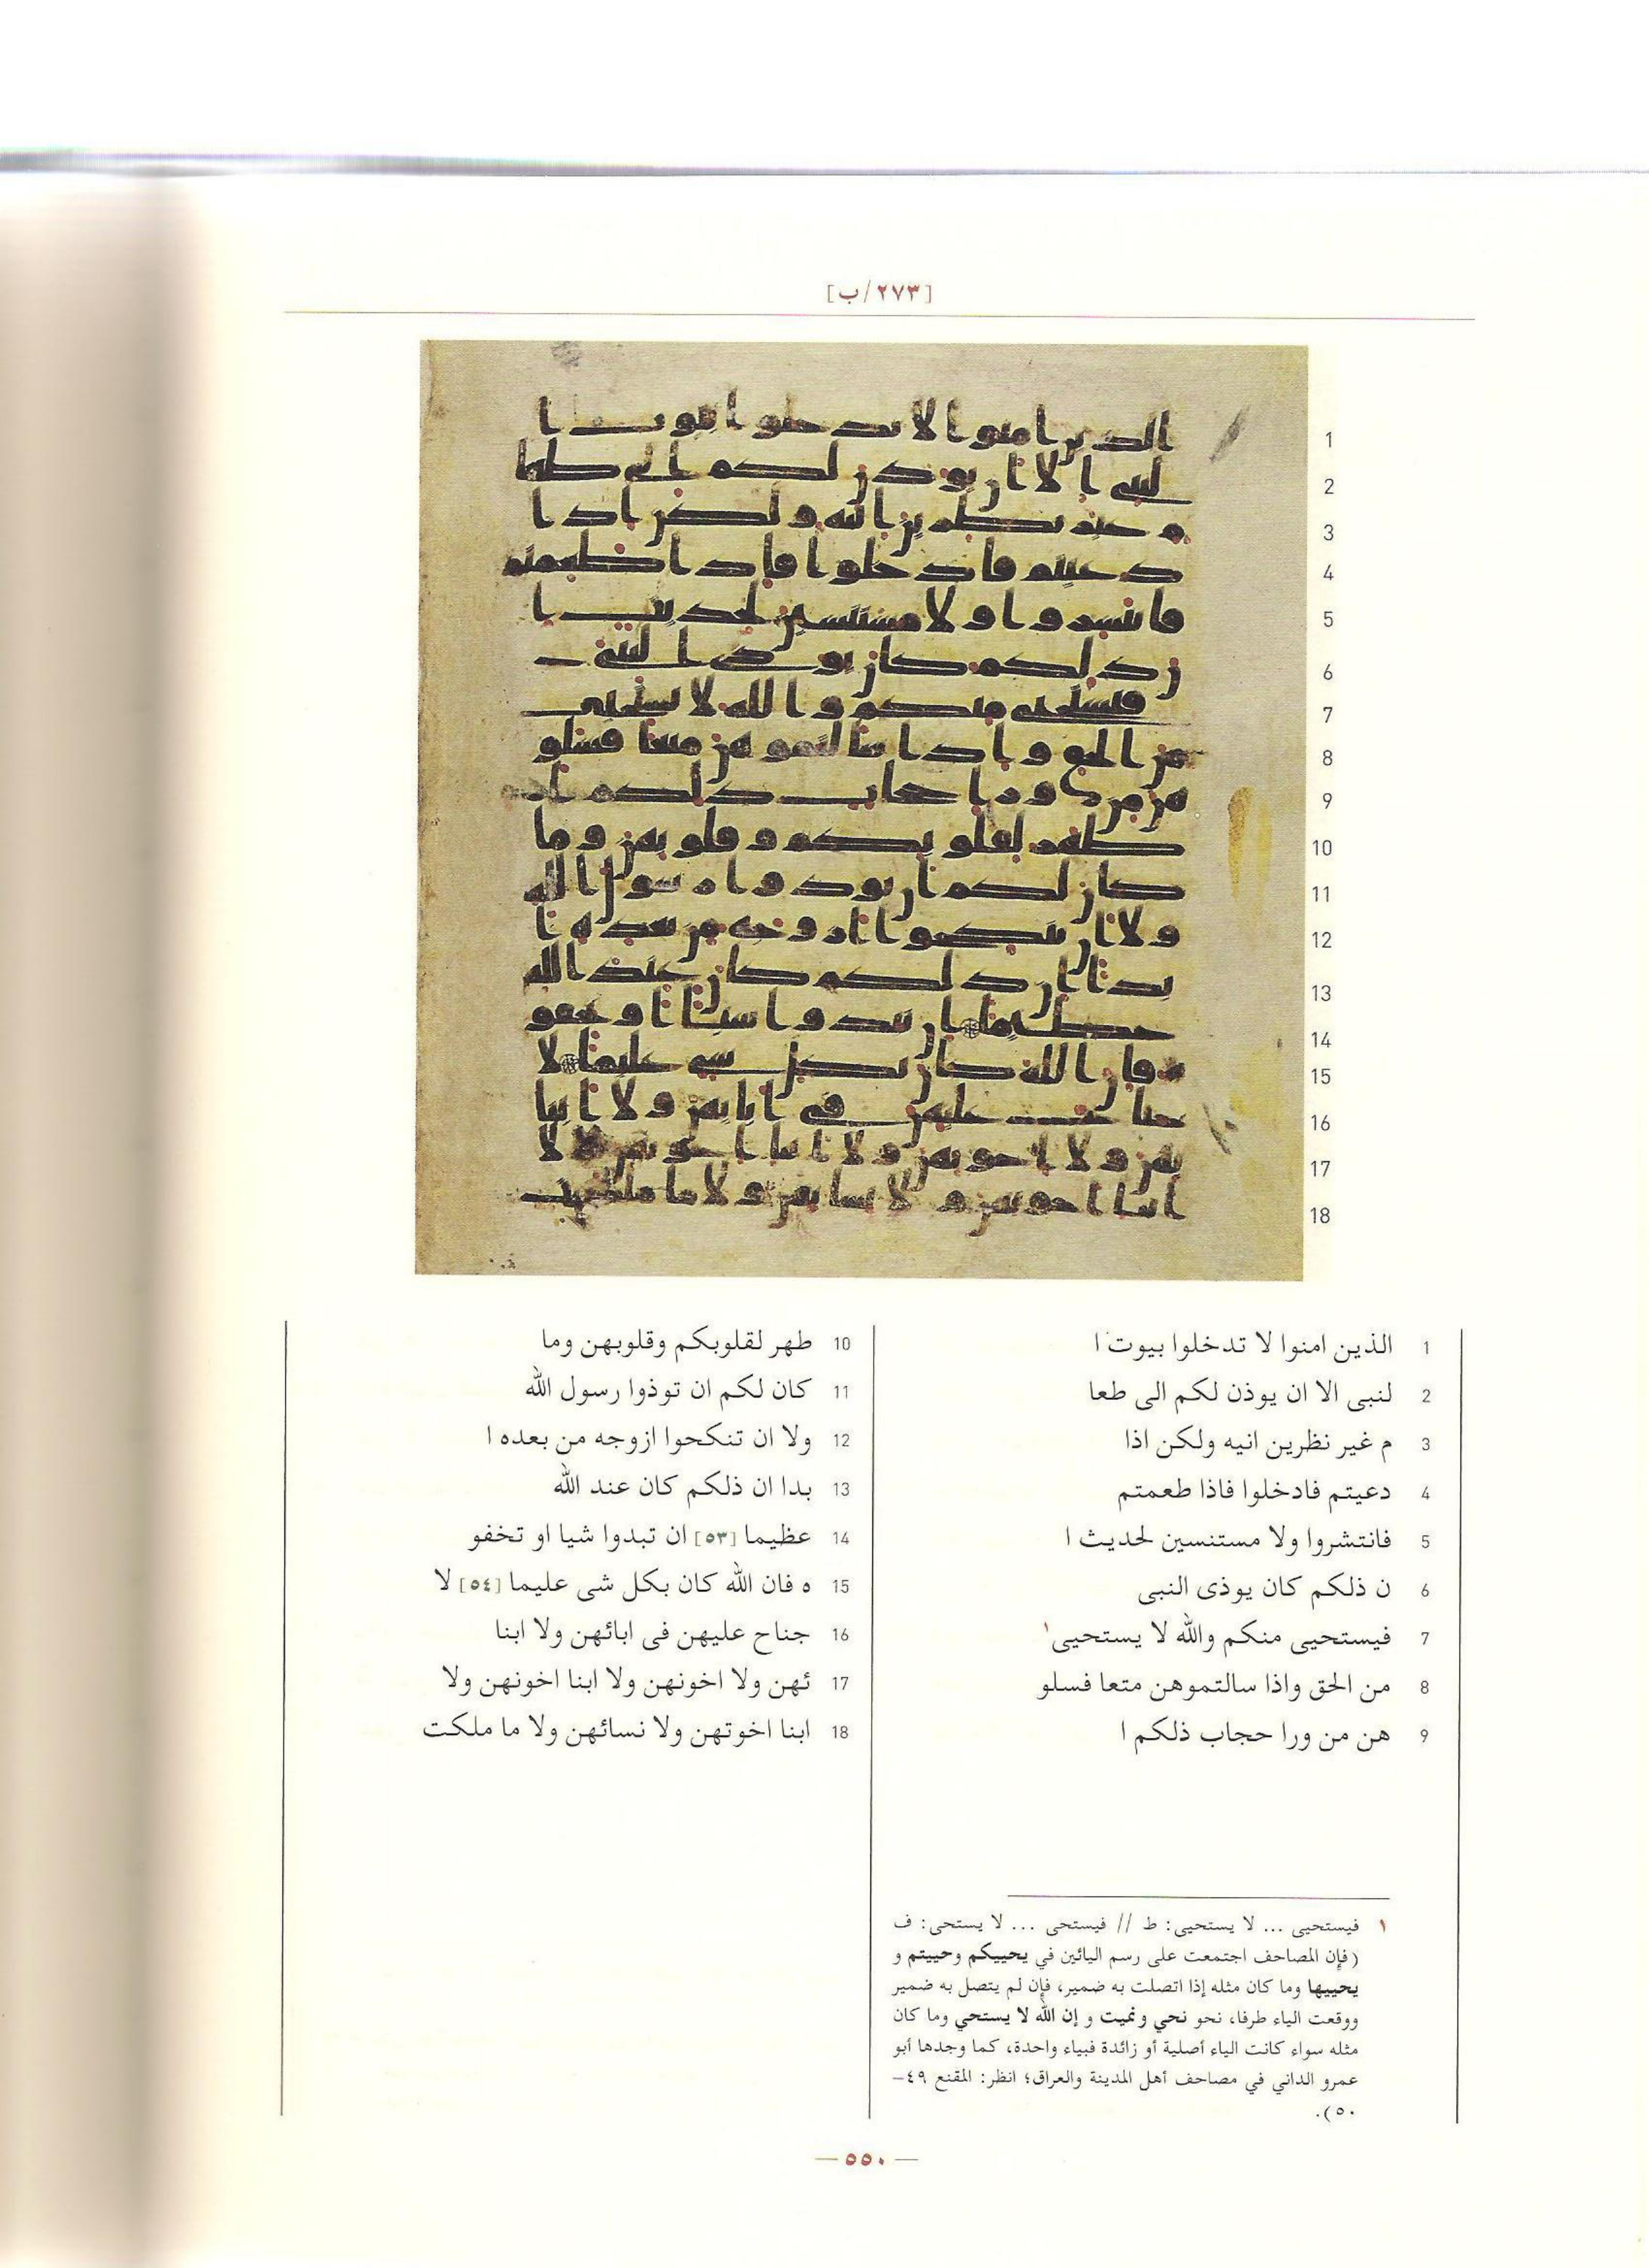 [٢٧٣/ب]
1 الذين امنوا لا تدخلوا بيوت ا
2 لنبى الا ان يوذن لكم الى طعا
3 م غير نظرين انيه ولكن اذا
4 دعيتم فادخلوا فاذا طعمتم
5 فانتشروا ولا مستنسين لحديث ا
6 ن ذلكم كان يوذى النبى
7 فيستحيى منكم والله لا يستحيى١
8 من الحق واذا سالتموهن متعا فسلو
9 هن من ورا حجاب ذلكم ا
10 طهر لقلوبكم وقلوبهن وما
11 كان لكم ان توذوا رسول الله
12 ولا ان تنكحوا ازوجه من بعده ا
13 بدا ان ذلكم كان عند الله
14 عظيما [٥٣] ان تبدوا شيا او تخفو
15 ه فان الله كان بكل شى عليما [٥٤] لا
16 جناح عليهن فى ابائهن ولا ابنا
17 ئهن ولا اخونهن ولا ابنا اخونهن ولا
18 ابنا اخوتهن ولا نسائهن ولا ما ملكت
١ فيستحيى ... لا يستحيى: ط // فيستحى ... لا يستحى: ف
(فإن المصاحف اجتمعت على رسم اليائين في يحييكم وحييتم و
يحييها وما كان مثله إذا اتصلت به ضمير، فإن لم يتصل به ضمير
ووقعت الياء طرفا، نحو نحي ونميت و إن الله لا يستحي وما كان
مثله سواء كانت الياء أصلية أو زائدة فبياء واحدة، كما وجدها أبو
عمرو الداني في مصاحف أهل المدينة والعراق؛ انظر: المقنع ٤٩–
٥٠).
— ٥٥٠ —